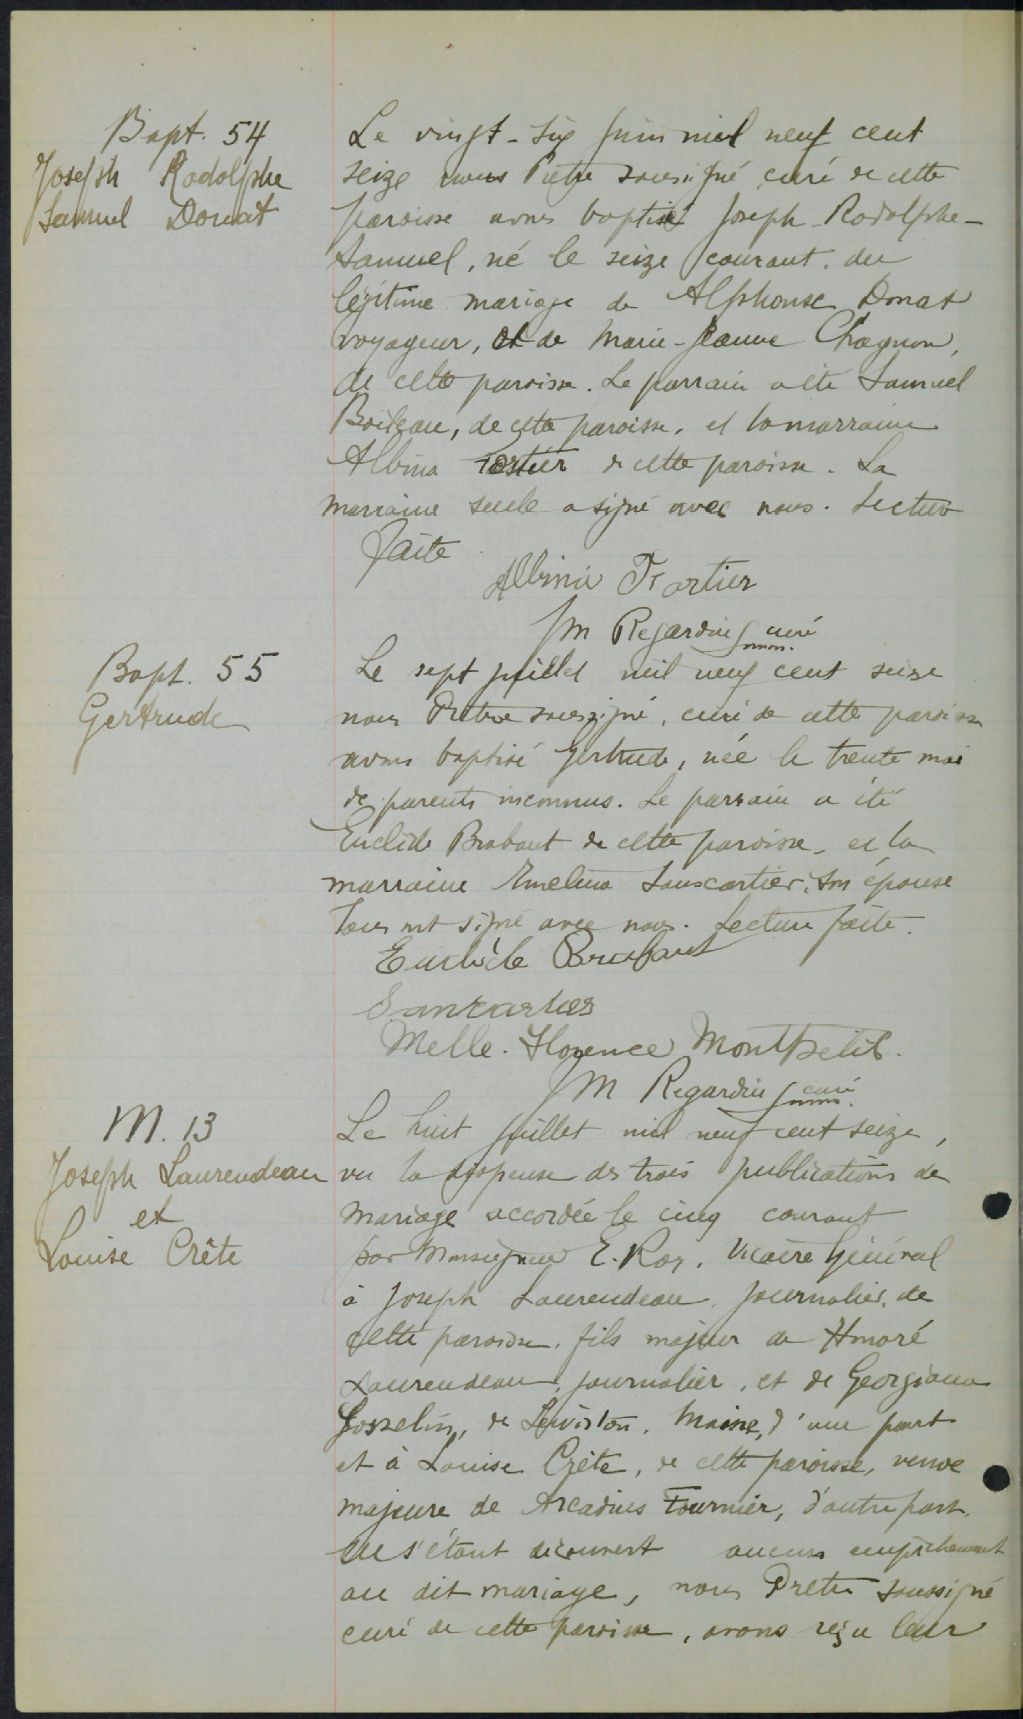 Bapt. 54
Joseph Rodolphe
Samuel Donat
Le vingt-six juin mil neuf cent
seize nous Prêtre soussigné, curé de cette
paroisse avons baptisé Joseph-Rodolphe-
Samuel, né le seize courant, du
légitime mariage de Alphonse Donat
voyageur, et de Marie-Jeanne Chagnon,
de cette paroisse. Le parrain a été Samuel
Boileau, de cette paroisse, et la marraine
Albina Fortier de cette paroisse. La
marraine seule a signé avec nous. Lecture
faite.
Albina Fortier
JM Regardin curé
Bapt. 55
Gertrude
Le sept juillet mil neuf cent seize
nous Prêtre soussigné, curé de cette paroisse
avons baptisé Gertrude, née le trente mai
de parents inconnus. Le parrain a été
Euclide Brabant de cette paroisse, et la
marraine Emelina Sanscartier, son épouse
Tous ont signé avec nous. Lecture faite.
Euclide Brabant
Sanscartier
Melle. Florence Montpetit.
JM Regardin curé
M. 13
Joseph Laurendeau
et
Louise Crête
Le huit juillet mil neuf cent seize,
vu la dispense des trois publications de
mariage accordée le cinq courant
par Monseigneur E. Roy, Vicaire Général
à Joseph Laurendeau, journalier, de
cette paroisse, fils majeur de Honoré
Laurendeau, journalier, et de Georgiana
Gosselin, de Lewiston, Maine, d'une part
et à Louise Crête, de cette paroisse, veuve
majeure de Arcadius Fournier, d'autre part.
ne s'étant découvert aucun empêchement
au dit mariage, nous Prêtre soussigné
curé de cette paroisse, avons reçu leur